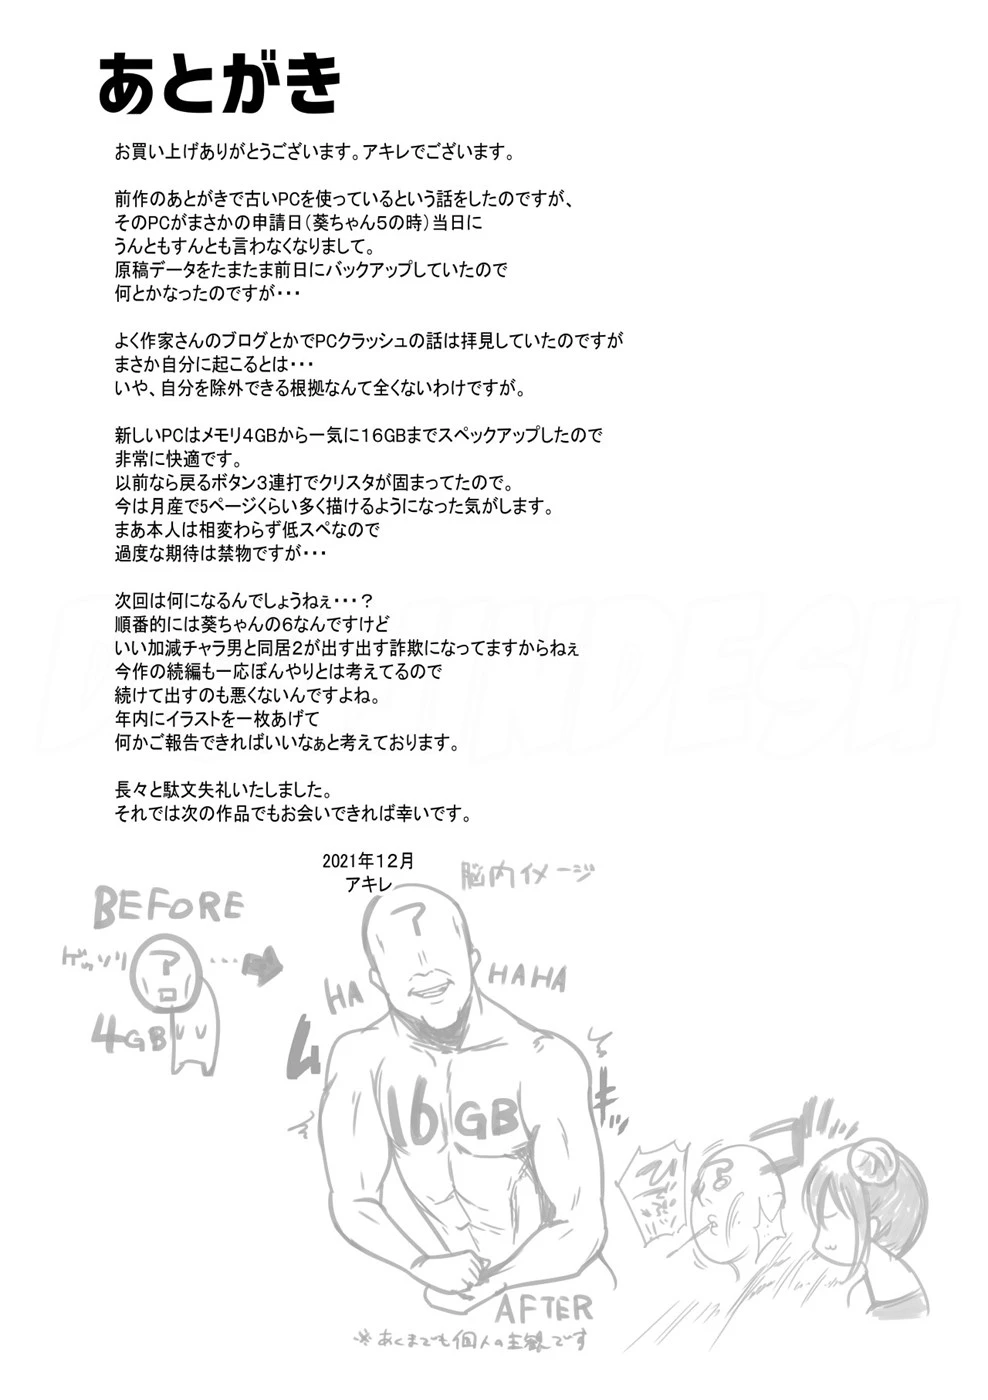 あとがき
お買い上げありがとうございます。アキレでございます。
前作のあとがきで古いPCを使っているという話をしたのですが、
そのPCがまさかの申請日（葵ちゃん５の時）当日に
うんともすんとも言わなくなりまして。
原稿データをたまたま前日にバックアップしていたので
何とかなったのですが・・・
よく作家さんのブログとかでPCクラッシュの話は拝見していたのですが
まさか自分に起こるとは・・・
いや、自分を除外できる根拠なんて全くないわけですが。
新しいPCはメモリ４GBから一気に１６GBまでスペックアップしたので
非常に快適です。
以前なら戻るボタン３連打でクリスタが固まってたので。
今は月産で5ページくらい多く描けるようになった気がします。
まあ本人は相変わらず低スペなので
過度な期待は禁物ですが・・・
次回は何になるんでしょうねぇ・・・？
順番的には葵ちゃんの６なんですけど
いい加減チャラ男と同居２が出す出す詐欺になってますからねぇ
今作の続編も一応ぼんやりとは考えてるので
続けて出すのも悪くないんですよね。
年内にイラストを一枚あげて
何かご報告できればいいなぁと考えております。
長々と駄文失礼いたしました。
それでは次の作品でもお会いできれば幸いです。
2021年１２月
アキレ
脳内イメージ
BEFORE
ゲッソリ
ア
4GB
ア
HA
HAHA
ムキッ
16GB
AFTER
※あくまでも個人の主観です
ア
ゴッ